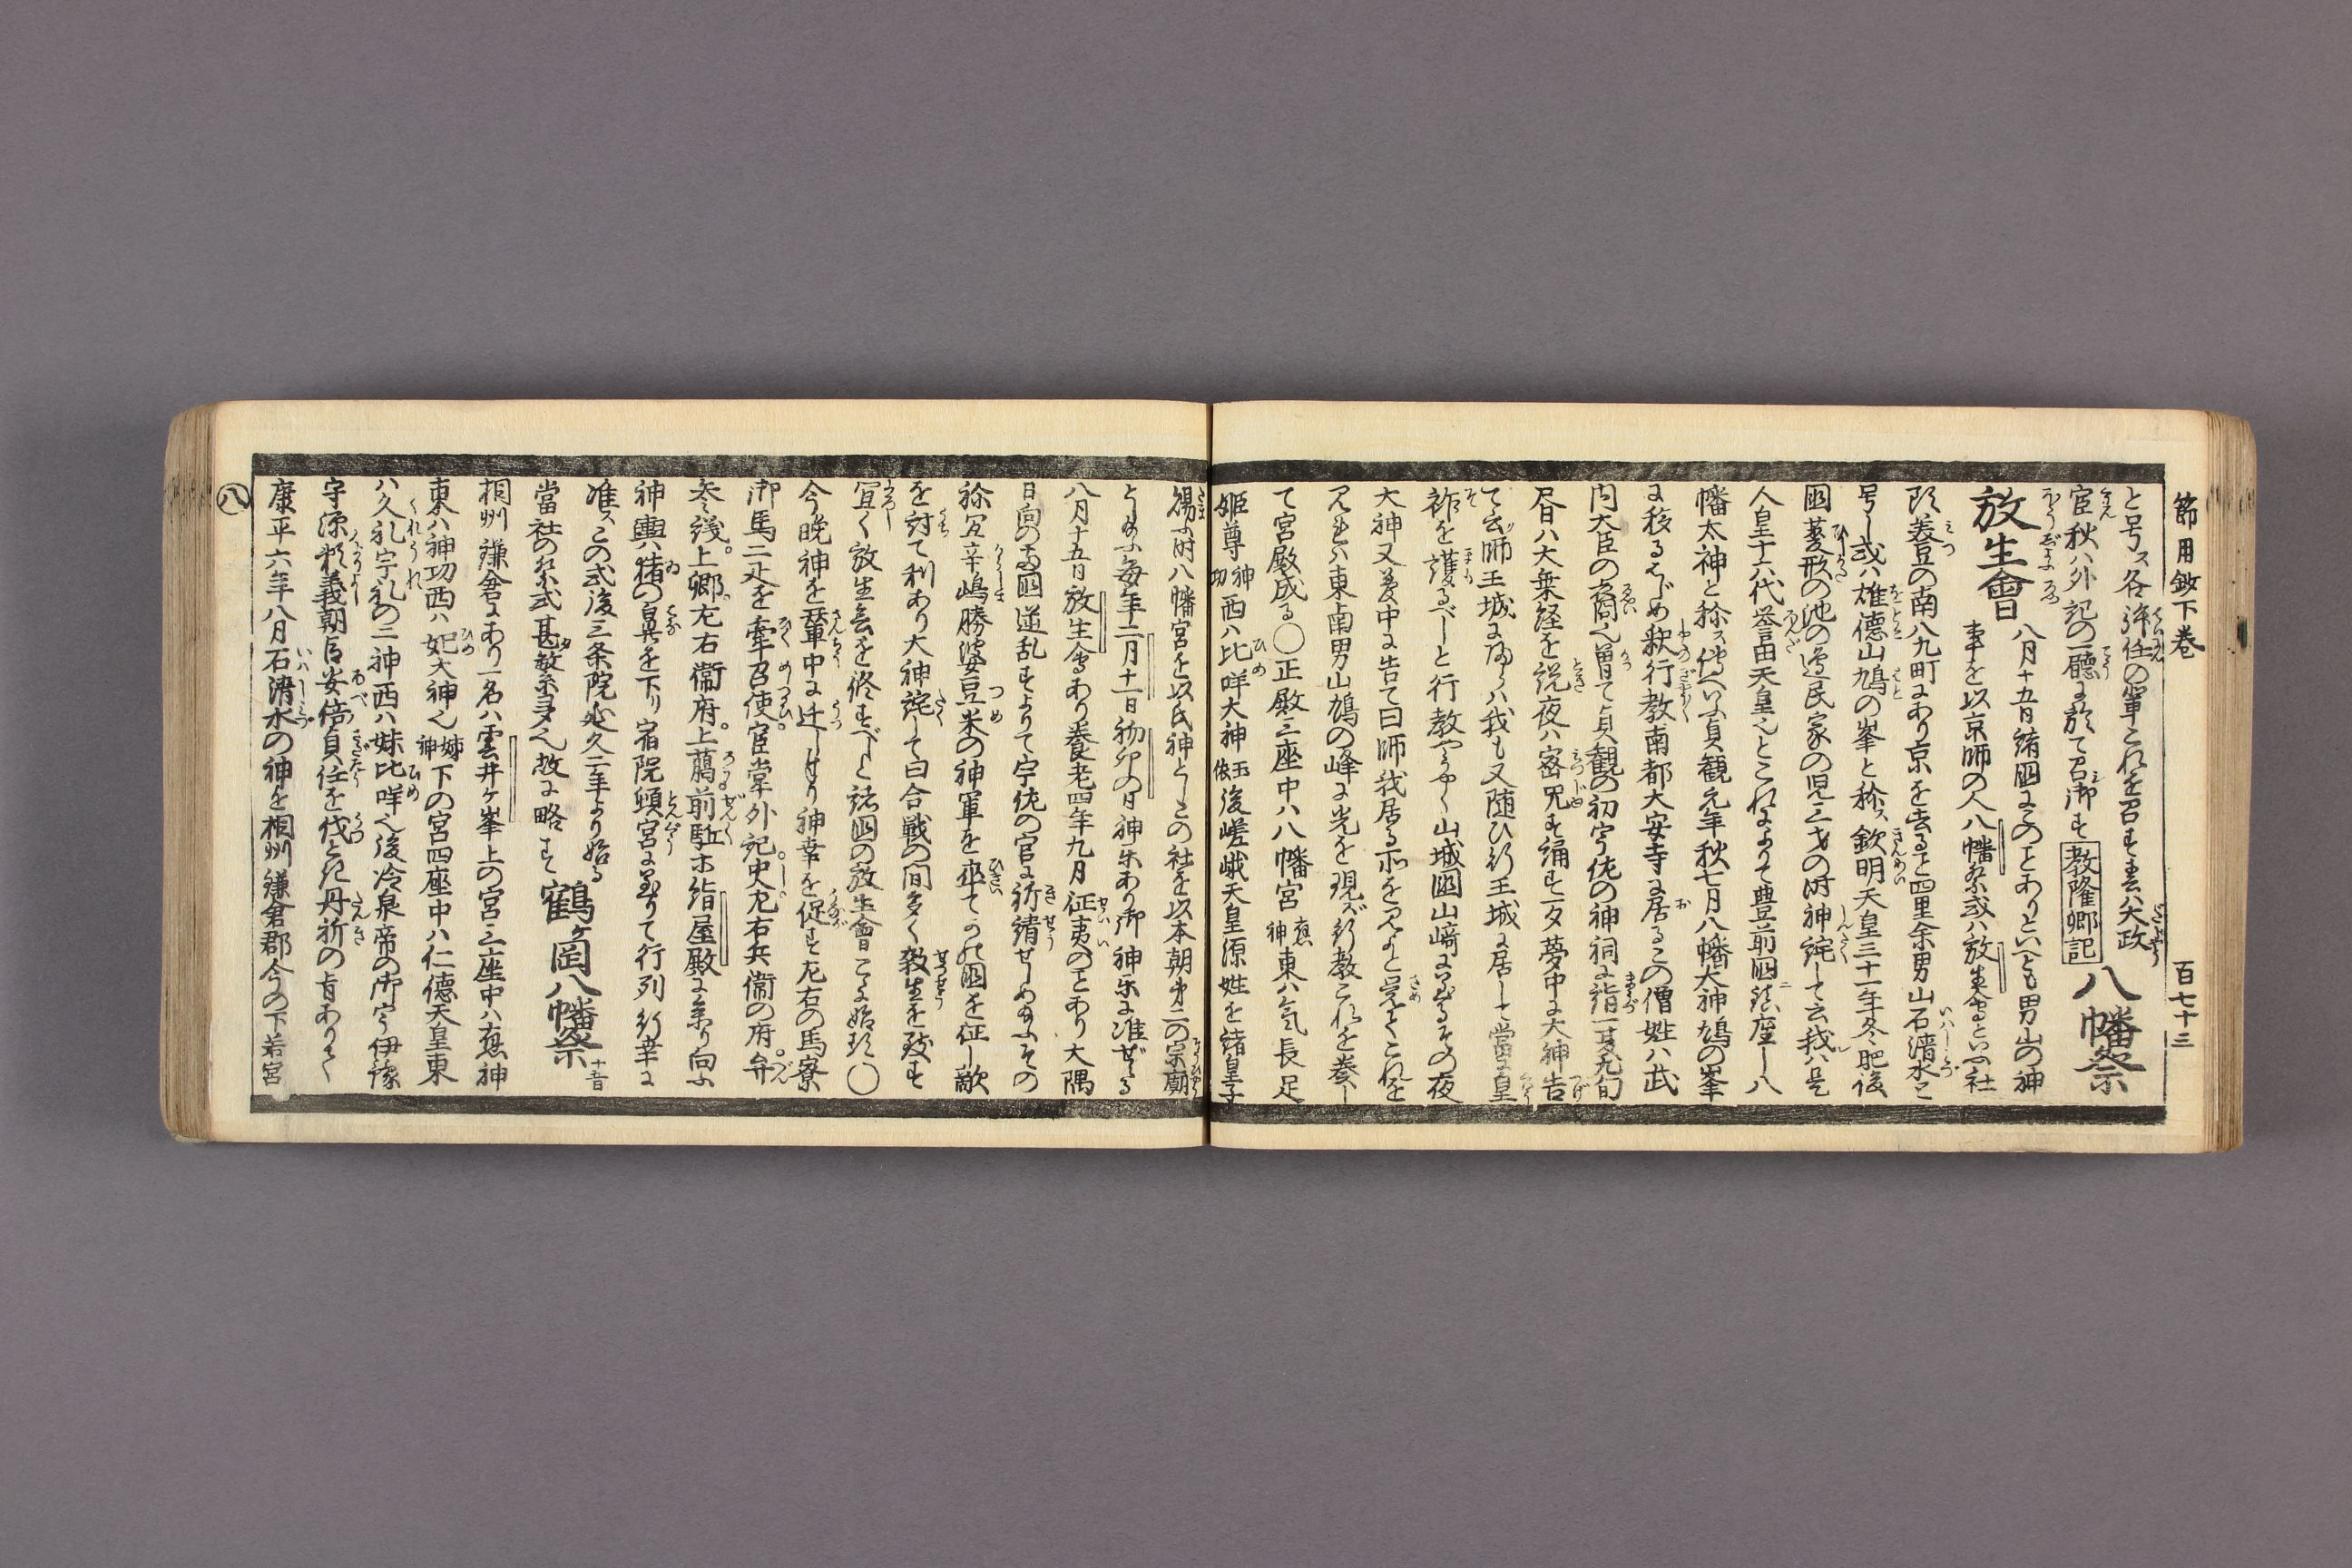 節用攷下巻
百七十三
と号ス各弁任の軍これを召す春ハ大政
官秋ハ外記の一聴に於て召仰す 教隆郷記 八幡祭
放生會
八月十五日諸國にこのことありといへども男山の神
事を以京師の人八幡祭或ハ放生會といふ社
の南八九町にあり京を去ること四里余男山石清水と
号し或ハ雄徳山鳩の峯と称ス欽明天皇三十一年冬肥後
國菱形の池の邊民家の児三才の時神詫して云我ハ是
人皇十六代誉田天皇也とこれによりて豊前國ニ鎮座し八
幡太神と称ス清和貞観元年秋七月八幡大神鳩の峯
に移るはじめ釈行教南都大安寺に居るこの僧姓ハ武
内大臣の裔也曽て貞観の初宇佐の神祠に詣一夏九旬
昼日ハ大乗経を説夜ハ密咒を誦す一夕夢中に大神告
て云師王城に帰らハ我も又随ひ行王城に居して當に皇
祚を護るべしと行教やうやく山城國山﨑に至るその夜
大神又夢中に告て曰師我居る所を見よと覚てこれを
見れハ東南男山鳩の峰に光を現ず行教これを奏し
て宮殿成る〇正殿三座中ハ八幡宮 應神 東ハ気長足
姫尊 神功 西ハ比咩大神 玉依 後嵯峨天皇源姓を諸皇子に
賜ふ時八幡宮を以氏神としこの社を以本朝第二の宗廟
としめふ毎年二月十一日初卯の日神楽あり御神楽に准ずる
八月十五日放生會あり養老四年九月征夷のことあり大隅
日向の両國逆乱すよりて宇佐の官に祈請せしめふその
祢宜辛嶋勝婆豆米の神軍を率てかの國を征し敵
を討て利あり大神詫して曰合戦の間多く殺生を致す
宜く放生會を修すべしと諸國の放生會こゝに始る〇
今晩神を輦車中に迁しけり神幸を促す左右の馬寮
御馬二疋を牽召使。官掌外記史。左右兵衞の府。弁
参議。上卿。左右衞府。上﨟前駈ホ指屋殿に参り向ふ
神輿ハ猪の鼻を下リ宿院頓宮に至りて行列行幸に
准スこの式後三条院延久二年より始る
當社の祭式甚繁多也故に略す 鶴ヶ岡八幡祭 十五日
相州鎌倉にあり一名ハ雲井ヶ峯上の宮三座中ハ應神
東ハ神功西ハ妃大神也 姉神 下の宮四座中ハ仁徳天皇東
ハ久礼宇礼の二神西ハ妹比咩也後冷泉帝の御宇伊豫
守源頼義朝臣安倍貞任を伐とき丹祈の旨ありて
康平六年八月石清水の神を相州鎌倉郡今の下若宮
八